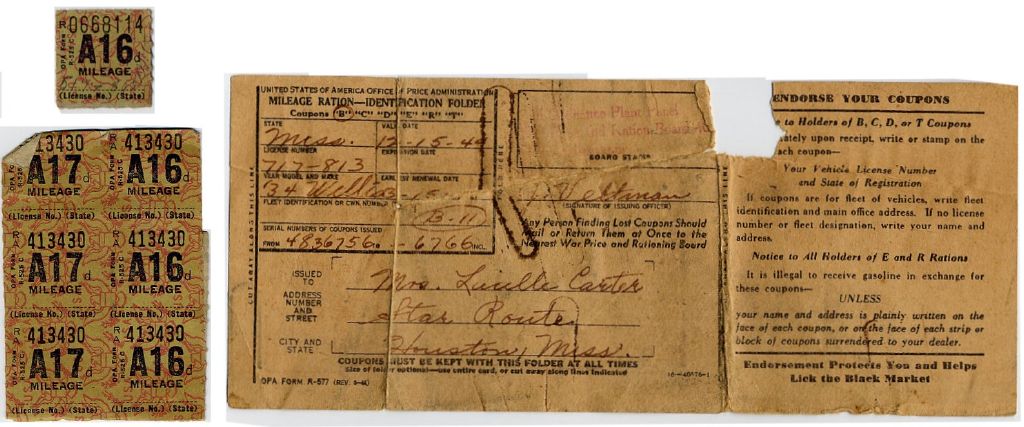 R 0668114
OPA Form R-525 C
A16 d
MILEAGE
(License No.) (State)
413430 413430
A17 A16
MILEAGE MILEAGE
(License No.) (State) (License No.) (State)
413430 413430
A17 d A16 d
MILEAGE MILEAGE
(License No.) (State) (License No.) (State)
413430 413430
A17 d A16 d
MILEAGE MILEAGE
(License No.) (State) (License No.) (State)
UNITED STATES OF AMERICA OFFICE OF PRICE ADMINISTRATION
MILEAGE RATION—IDENTIFICATION FOLDER
Coupons "B" "C" "D" "E" "R" "T"
STATE VALID DATE
Miss. 12-15-44
LICENSE NUMBER EXPIRATION DATE
717-813
YEAR MODEL AND MAKE EARLIEST RENEWAL DATE
34
FLEET IDENTIFICATION OR CWN. NUMBER
B-11
SERIAL NUMBERS OF COUPONS ISSUED
FROM 4836756 - 6766 INCL.
CUT AWAY ALONG THIS LINE
Plant
Ration Board
BOARD STAMP
(SIGNATURE OF ISSUING OFFICER)
Any Person Finding Lost Coupons Should
Mail or Return Them at Once to the
Nearest War Price and Rationing Board
ISSUED TO
Mrs. Lucille Carter
ADDRESS NUMBER AND STREET
Star Route
CITY AND STATE
Houston, Miss.
COUPONS MUST BE KEPT WITH THIS FOLDER AT ALL TIMES
Size of folder optional—use entire card, or cut away along lines indicated
OPA FORM R-577 (REV. 5-44) 16-40576-1
ENDORSE YOUR COUPONS
to Holders of B, C, D, or T Coupons
upon receipt, write or stamp on the
each coupon—
Your Vehicle License Number
and State of Registration
If coupons are for fleet of vehicles, write fleet
identification and main office address. If no license
number or fleet designation, write your name and
address.
Notice to All Holders of E and R Rations
It is illegal to receive gasoline in exchange for
these coupons—
UNLESS
your name and address is plainly written on the
face of each coupon, or on the face of each strip or
block of coupons surrendered to your dealer.
Endorsement Protects You and Helps
Lick the Black Market